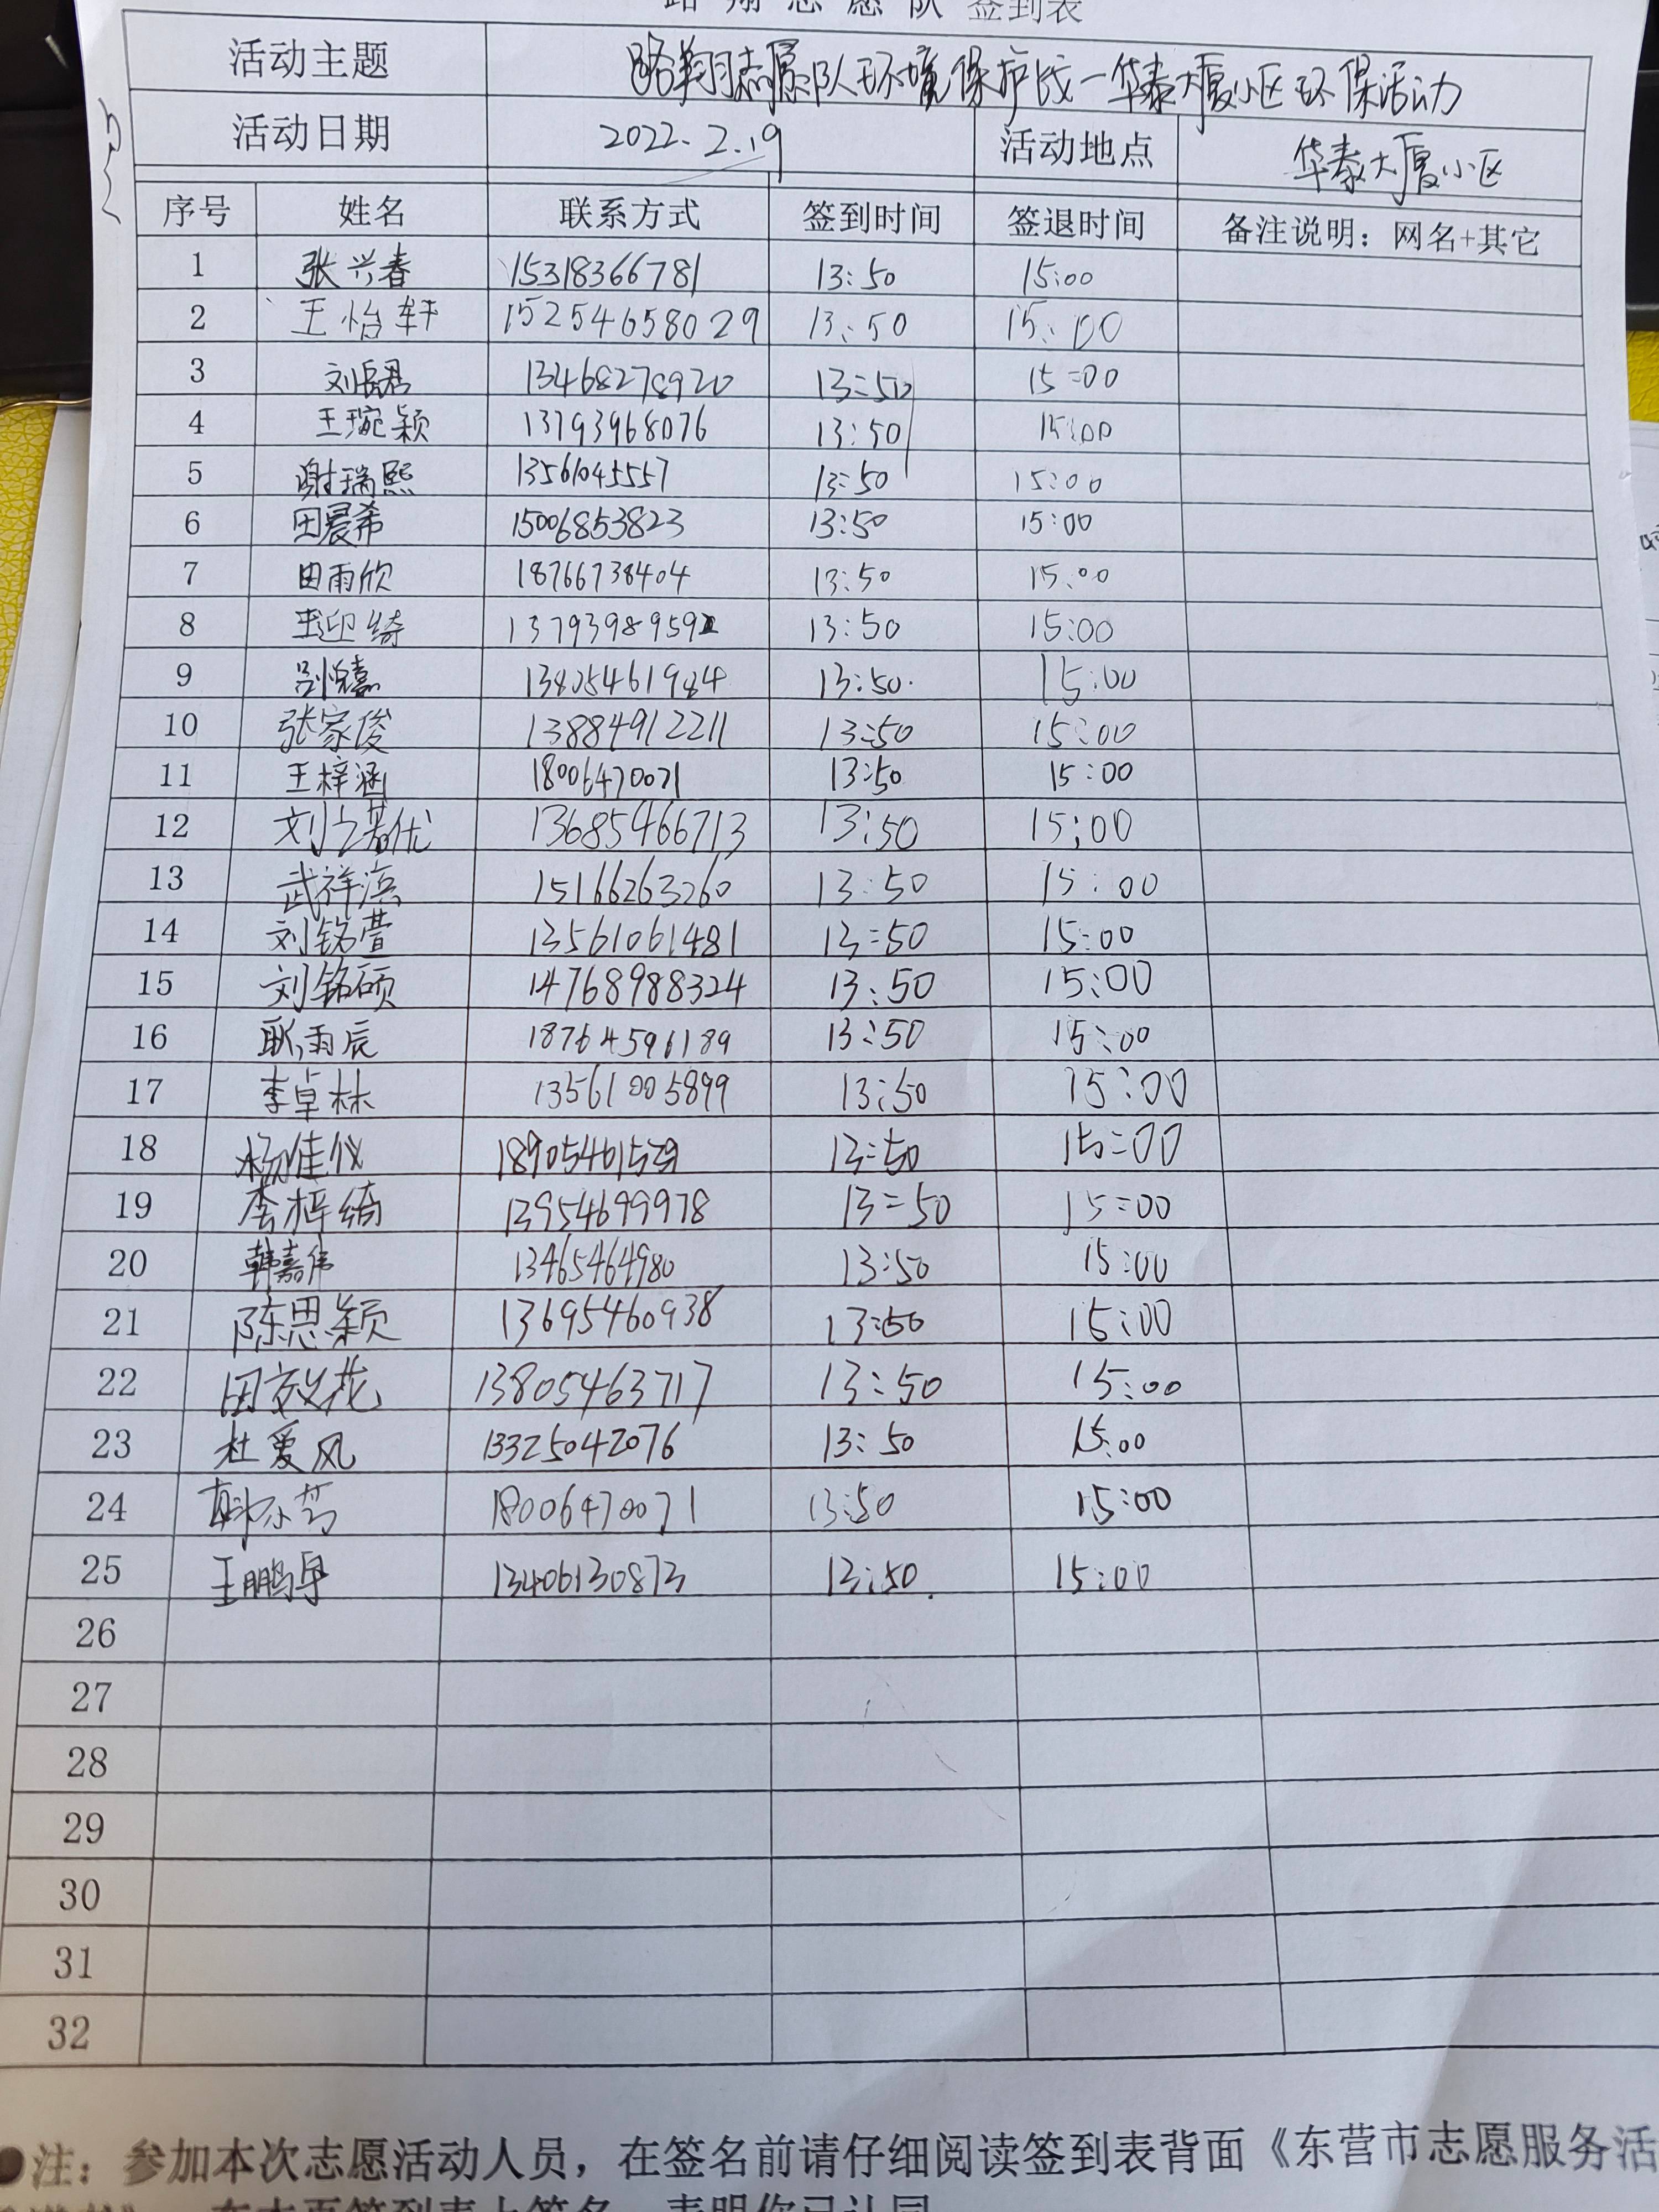 路 翔 志 愿 队 签到表
活动主题 路翔志愿队环境保护队—华泰大厦小区环保活动
活动日期 2022.2.19 活动地点 华泰大厦小区
序号 姓名 联系方式 签到时间 签退时间 备注说明：网名+其它
1 张兴春 15318366781 13:50 15:00
2 王怡轩 15254658029 13:50 15:00
3 刘辰君 13468278920 13:50 15:00
4 王琬颖 13793968076 13:50 15:00
5 谢瑞熙 13561045557 13:50 15:00
6 田晨希 15006853823 13:50 15:00
7 田雨欣 18766738404 13:50 15:00
8 王迎绮 1379398959 13:50 15:00
9 吕悦嘉 13805461984 13:50 15:00
10 张家俊 13884912211 13:50 15:00
11 王梓涵 18006470071 13:50 15:00
12 刘之若优 13685466713 13:50 15:00
13 武祥滨 15166263260 13:50 15:00
14 刘铭萱 13561061481 13:50 15:00
15 刘铭硕 14768988324 13:50 15:00
16 耿雨辰 18764596189 13:50 15:00
17 李卓林 13561005899 13:50 15:00
18 杨佳仪 13:50 15:00
19 李梓绮 13954699978 13:50 15:00
20 韩嘉伟 13465464980 13:50 15:00
21 陈思颖 13695460938 13:50 15:00
22 田效花 13805463717 13:50 15:00
23 杜爱风 13325042076 13:50 15:00
24 18006470071 13:50 15:00
25 王鹏阜 13406130873 13:50 15:00
26
27
28
29
30
31
32
●注：参加本次志愿活动人员，在签名前请仔细阅读签到表背面《东营市志愿服务活
在本页签到表上签名，表明你已认同